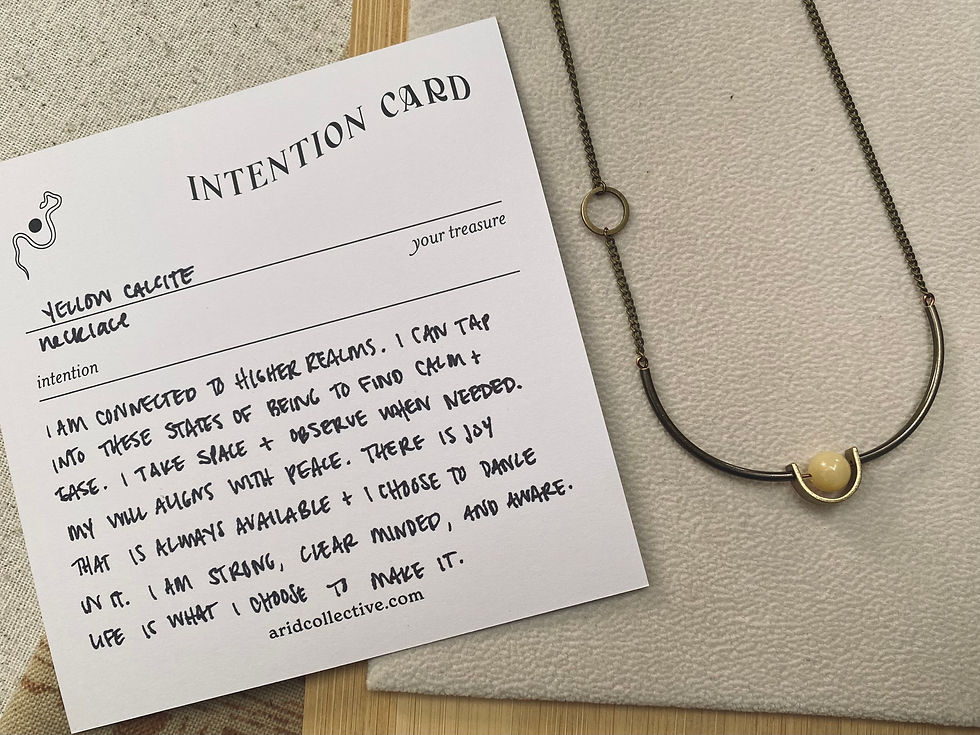 INTENTION CARD
your treasure
YELLOW CALCITE
necklace
intention
I AM CONNECTED TO HIGHER REALMS. I CAN TAP
INTO THESE STATES OF BEING TO FIND CALM +
EASE. I TAKE SPACE + OBSERVE WHEN NEEDED.
MY WILL ALIGNS WITH PEACE. THERE IS JOY
THAT IS ALWAYS AVAILABLE + I CHOOSE TO DANCE
IN IT. I AM STRONG, CLEAR MINDED, AND AWARE.
LIFE IS WHAT I CHOOSE TO MAKE IT.
aridcollective.com